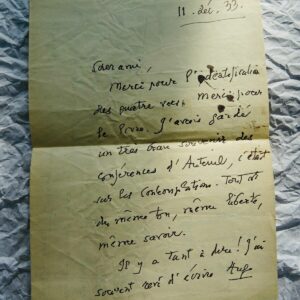 11. déc. 33.
Cher ami,
Merci pour l'identification
des quatre vers, merci pour
le livre. J'avais gardé
un très beau souvenir des
conférences d'Auteuil, c'était
sur les Contemplations. Tout est
du même ton, même liberté,
même savoir.
Il y a tant à dire! J'ai
souvent rêvé d'écrire Hugo